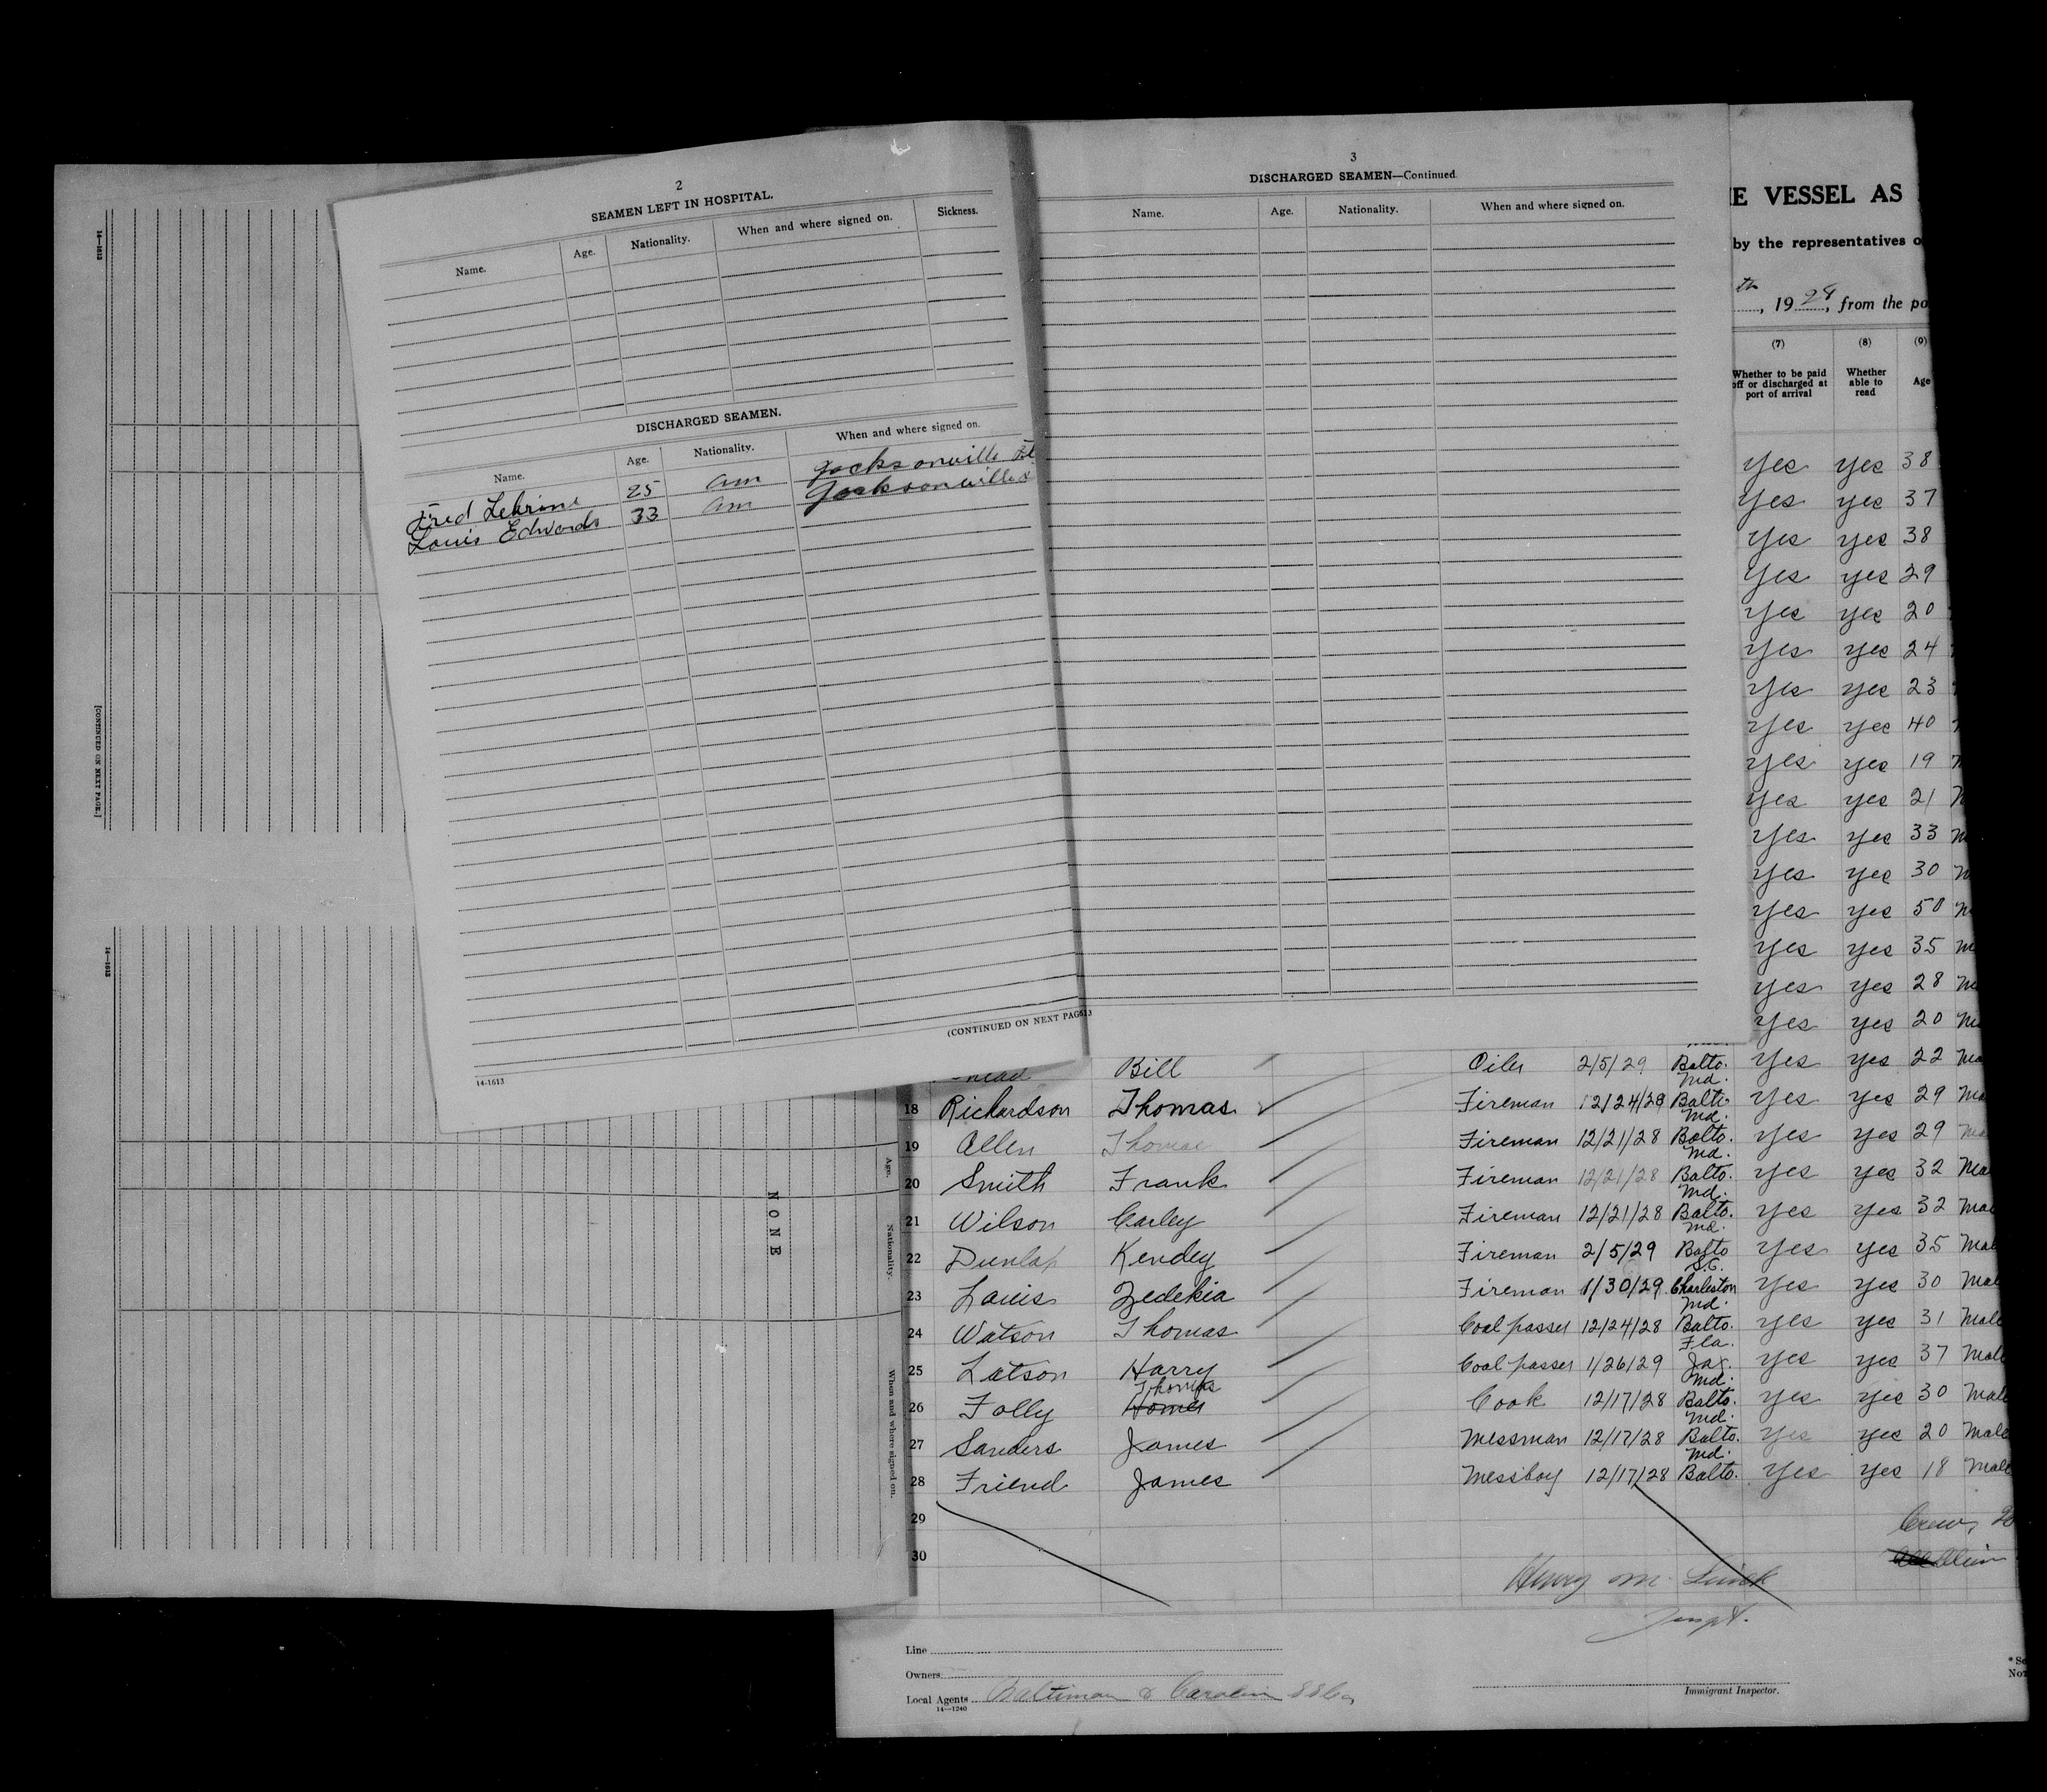 2
SEAMEN LEFT IN HOSPITAL.
Name. Age. Nationality. When and where signed on. Sickness.
DISCHARGED SEAMEN.
Name. Age. Nationality. When and where signed on.
Fred 25 am Jacksonville Fl
Louis Edwards 33 am Jacksonville
(CONTINUED ON NEXT PAG
14-1613
3
DISCHARGED SEAMEN—Continued.
Name. Age. Nationality. When and where signed on.
14-1613
[CONTINUED ON NEXT PAGE.]
14-1613
Age.
Nationality.
When and where signed on.
NONE
E VESSEL AS
by the representatives o
th, 1929, from the po
(7) (8) (9)
Whether to be paid off or discharged at port of arrival
Whether able to read
Age
Yes yes 38
Yes yes 37
Yes yes 38
Yes yes 29
Yes yes 20
Yes yes 24
Yes yes 23
Yes yes 40
Yes yes 19
Yes yes 21
Yes yes 33
Yes yes 30
Yes yes 50
Yes yes 35
Yes yes 28
Yes yes 20
Bill Oiler 2/5/29 Balto. Yes yes 22 Ma
18 Richardson Thomas Fireman 12/24/28 Md. Balto. Yes yes 29 Ma
19 Allen Thomas Fireman 12/21/28 Md. Balto. Yes yes 29 Ma
20 Smith Frank Fireman 12/21/28 Md. Balto. Yes yes 32 Ma
21 Wilson Carley Fireman 12/21/28 Md. Balto. Yes yes 32 Mal
22 Dunlap Kendey Fireman 2/5/29 Md. Balto Yes yes 35 Mal
23 Louis Zedekia Fireman 1/30/29 S.C. Charleston Yes yes 30 Mal
24 Watson Thomas Coal passer 12/24/28 Md. Balto. Yes yes 31 Male
25 Latson Harry Coal passer 1/26/29 Fla. Jax. Yes yes 37 Male
26 Folly Homer Thomas Cook 12/17/28 Md. Balto. Yes yes 30 Male
27 Sanders James Messman 12/17/28 Md. Balto. Yes yes 20 Male
28 Friend James Messboy 12/17/28 Md. Balto. Yes yes 18 Male
29 Crew,
30
Henry M.
Line
Owners
Local Agents Baltimore & Carolina SS Co,
14—1240
Immigrant Inspector.
* Se
No